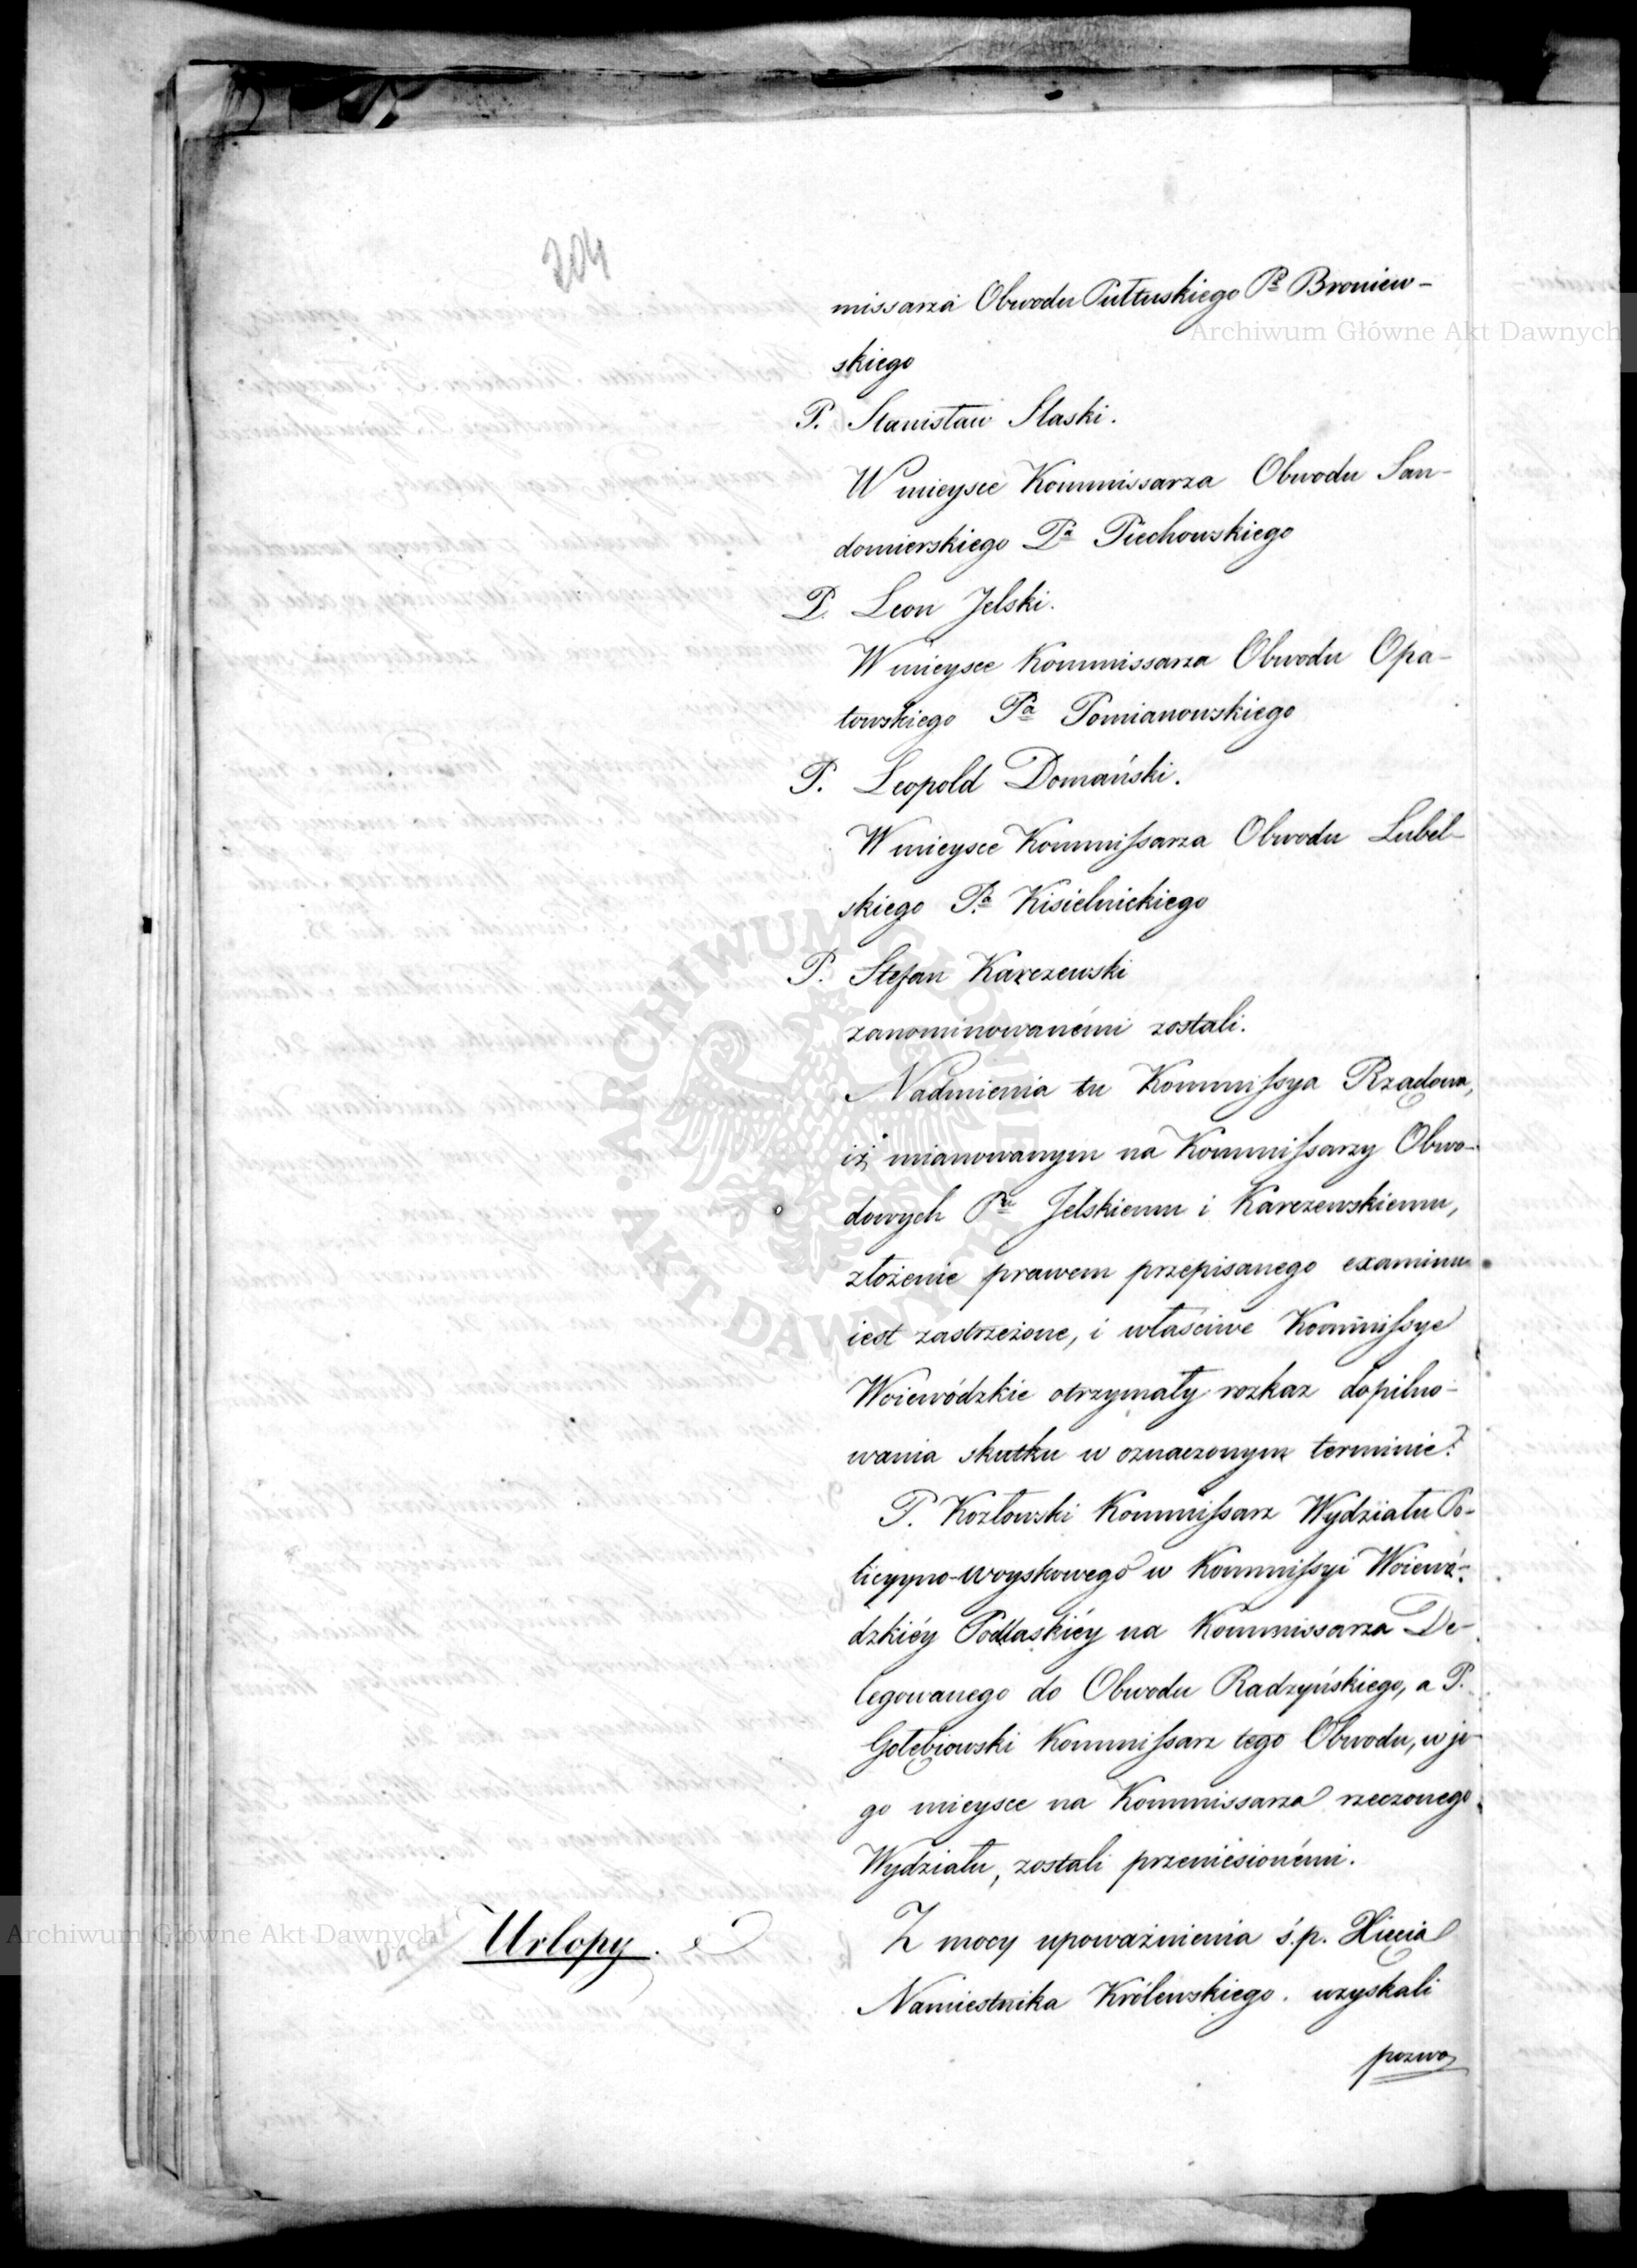 204
missarza Obwodu Pułtuskiego Pa Broniew-
skiego
P. Stanisław Slaski.
W mieysce Kommissarza Obwodu San-
domierskiego Pa Piechowskiego
P. Leon Jelski.
W mieysce Kommissarza Obwodu Opa-
towskiego Pa Pomianowskiego
P. Leopold Domański.
W mieysce Kommissarza Obwodu Lubel-
skiego Pa Kisielnickiego
P. Stefan Karczewski
zanominowanémi zostali.
Nadmienia tu Kommissya Rządowa,
iż mianowanym na Kommissarzy Obwo-
dowych Pu Jelskiemu i Karczewskiemu,
złożenie prawem przepisanego examinu
iest zastrzeżone, i właściwe Kommissye
Woiewódzkie otrzymały rozkaz dopilno-
wania skutku w oznaczonym terminie.
P. Kozłowski Kommissarz Wydziału Po-
licyyno-woyskowego w Kommissyi Woiewó-
dzkiéy Podlaskiéy na Kommissarza De-
legowanego do Obwodu Radzyńskiego, a P.
Gołębiowski Kommissarz tego Obwodu, w je-
go mieysce na Kommissarza rzeczonego
Wydziału, zostali przeniesionémi.
Urlopy. Z mocy upoważnienia ś.p. Xięcia
Namiestnika Królewskiego. uzyskali
pozwo
Archiwum Główne Akt Dawnych
Archiwum Główne Akt Dawnych
ARCHIWUM GŁÓWNE AKT DAWNYCH